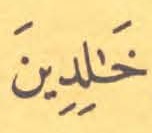 خَٰلِدِينَ